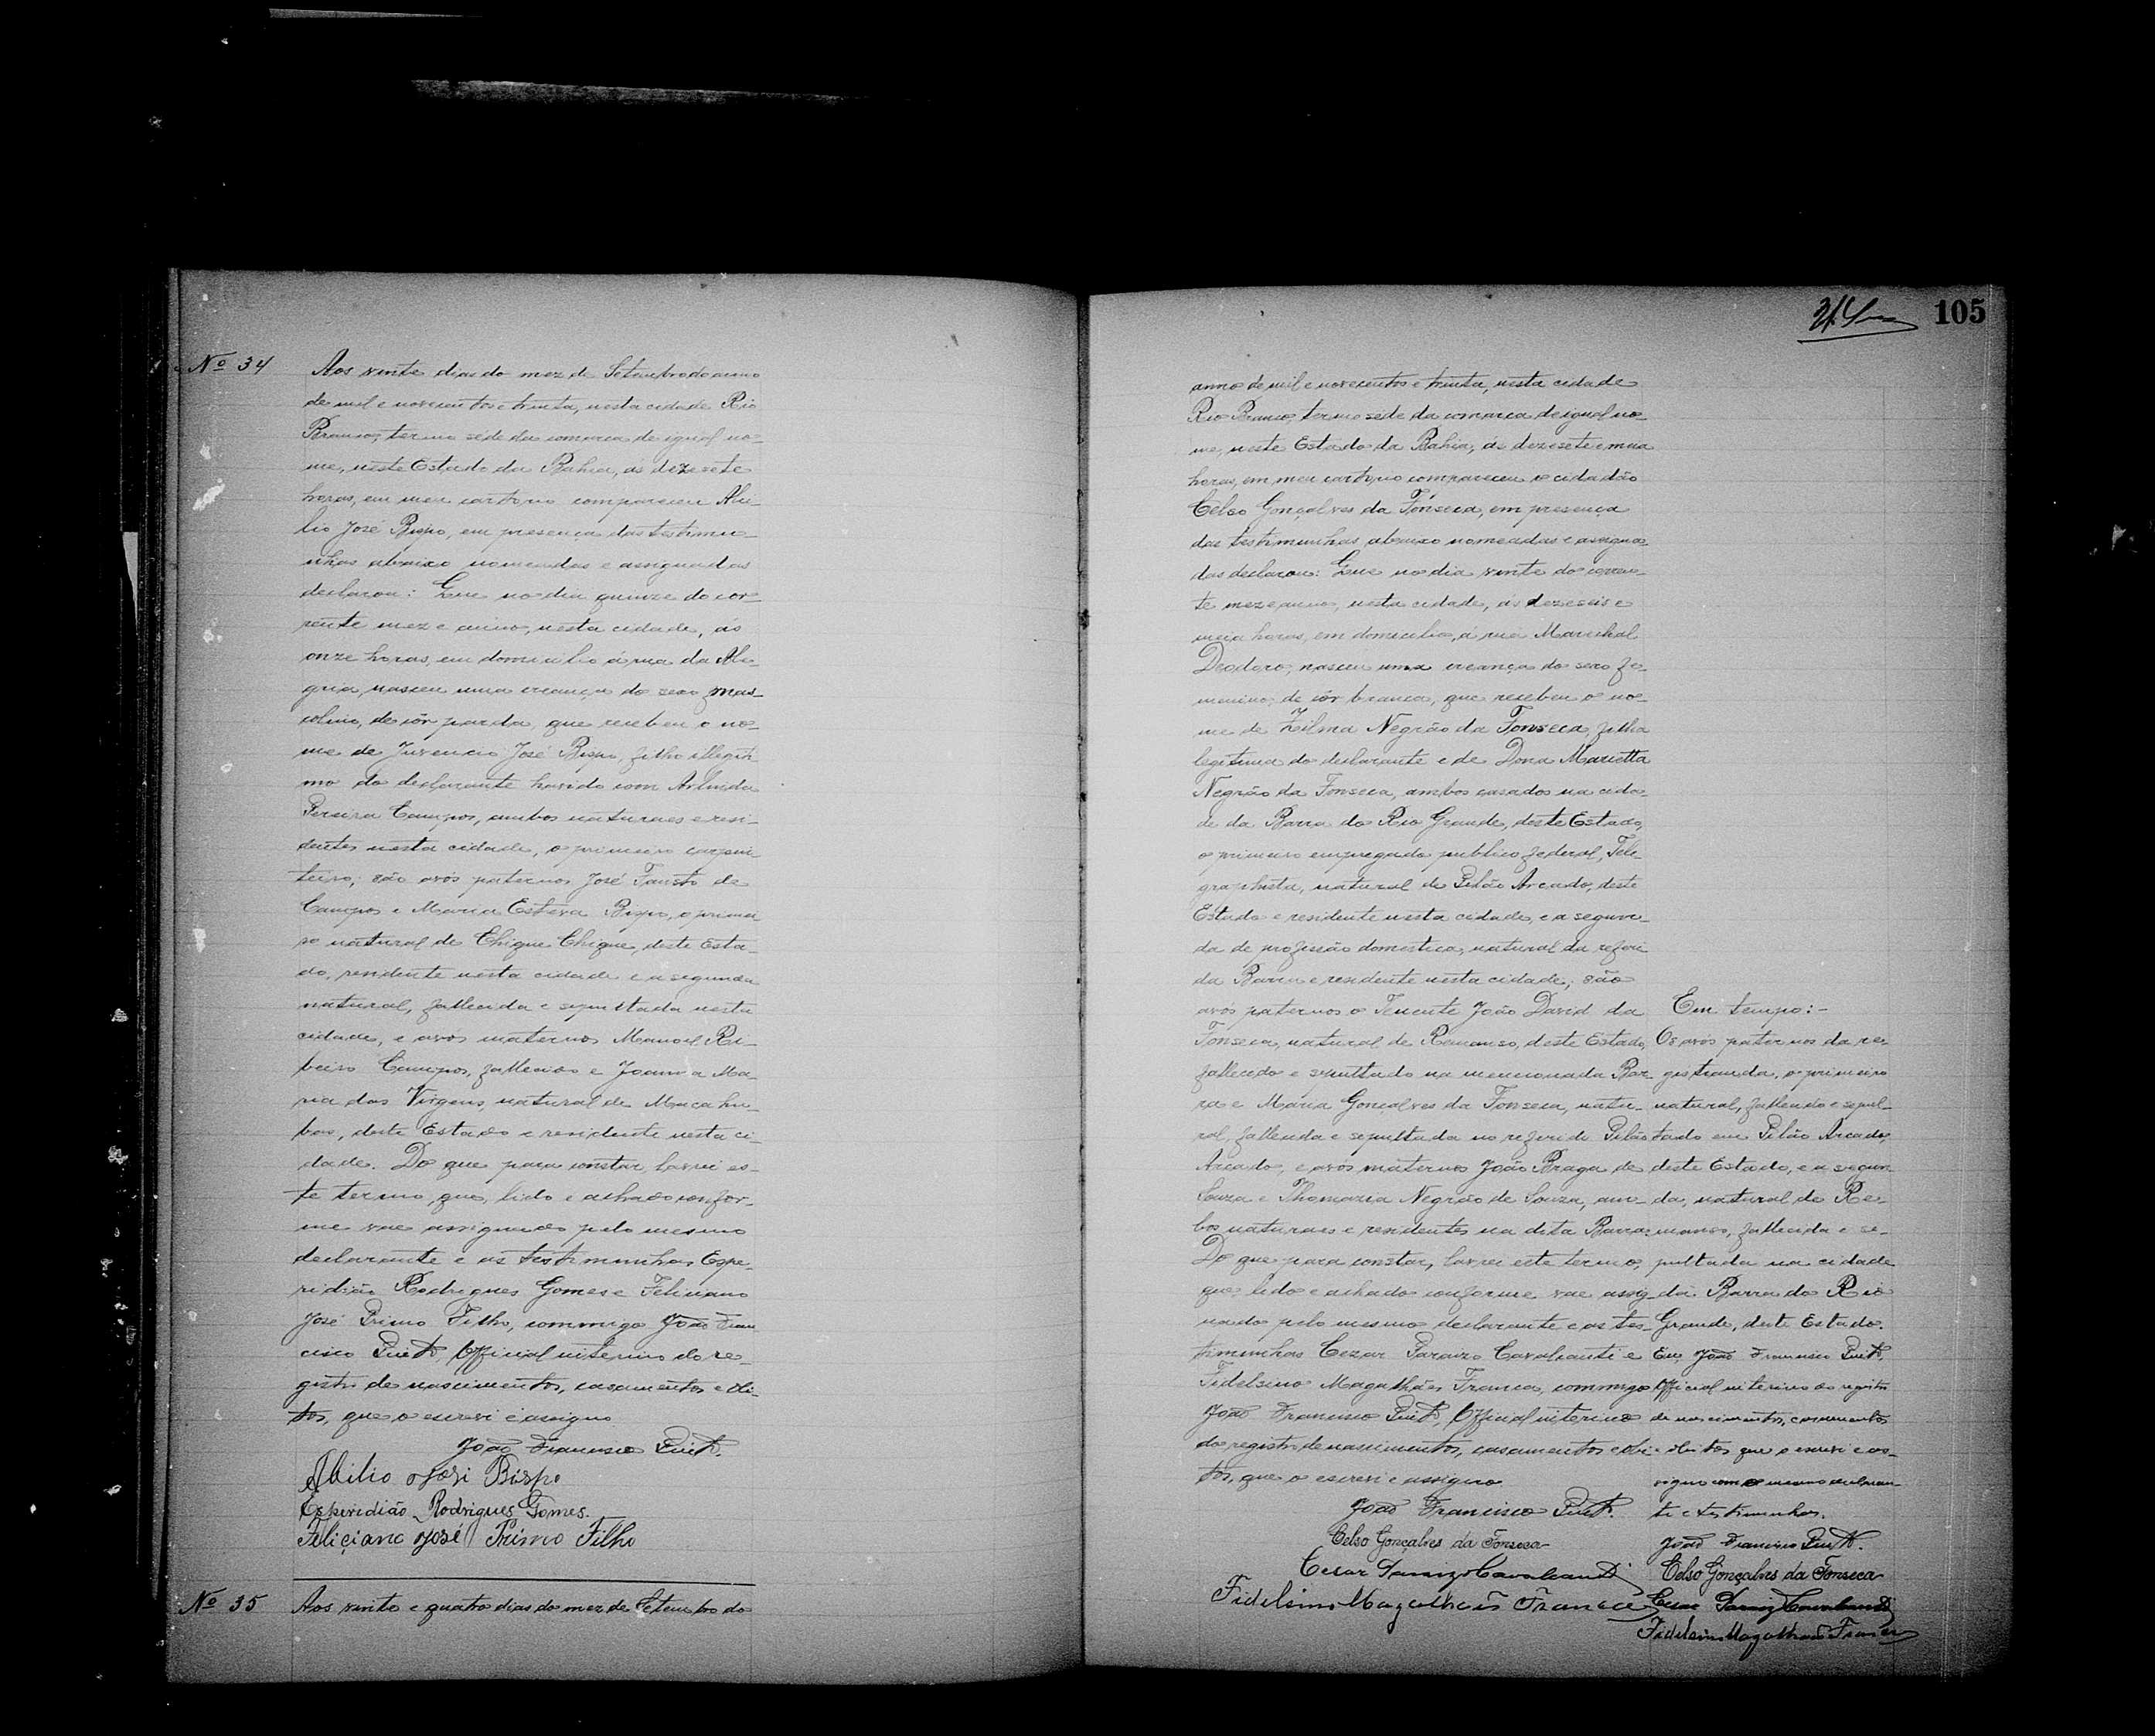 Nº 34
Aos vinte dias do mez de Setembro do anno
de mil e novecentos e trinta, nesta cidade Rio
Branco, termo sede da comarca de igual no-
me, neste Estado da Bahia, ás dezesete
horas, em meu cartorio compareceu Abi-
lio José Bispo, em presença das testimu-
nhas abaixo nomeadas e assignadas
declarou: Que no dia quinze do cor-
rente mez e anno, nesta cidade, ás
onze horas, em domicilio á rua da Ale-
gria, nasceu uma creança do sexo mas-
colino, de côr parda, que recebeu o no-
me de Juvencio José Bispo, filho illegiti-
mo do declarante havido com Arlinda
Pereira Campos, ambos naturaes e resi-
dentes nesta cidade, o primeiro carpin-
teiro; são avós paternos José Fausto de
Campos e Maria Esteva Bispo, o primei
ro natural de Chique Chique, deste Esta-
do, residente nesta cidade e a segunda
natural, fallecida e sepultada nesta
cidade, e avós maternos Manoel Ri-
beiro Campos, fallecido e Joanna Ma-
ria das Virgens, natural de Macahu-
bas, deste Estado e residente nesta ci-
dade. Do que para constar, lavrei es-
te termo, que, lido e achado confor-
me vae assignado pelo mesmo
declarante e as testimunhas Espe-
ridião Rodrigues Gomes e Feliciano
José Primo Filho, commigo João Fran
cisco Official interino do re-
gistro de nascimentos, casamentos e obi-
tos, que o escrevi e assigno
João Francisco
Abilio José Bispo
Esperidião Rodrigues Gomes.
Feliciano José Primo Filho
Nº 35
Aos vinte e quatro dias do mez de Setembro do
105
anno de mil e novecentos e trinta, nesta cidade
Rio Branco, termo sede da comarca de igual no-
me, neste Estado da Bahia, ás dezesete e meia
horas, em meu cartorio compareceu o cidadão
Celso Gonçalves da Fonseca, em presença
das testimunhas abaixo nomeadas e assigna-
das declarou: Que no dia vinte do corren-
te mez e anno, nesta cidade, ás dezeseis e
meia horas, em domicilio, á rua Marechal
Deodoro, nasceu uma creança do sexo fe-
menino, de côr branca, que recebeu o no-
me de Zilma Negrão da Fonseca, filha
legitima do declarante e de Dona Marietta
Negrão da Fonseca, ambos casados na cida-
de da Barra do Rio Grande, deste Estado,
o primeiro empregado publico federal, Tele-
graphista, natural de Pilão Arcado, deste
Estado e residente nesta cidade, e a segun-
da de profissão domestica, natural da referi
da Barra e residente nesta cidade; são
avós paternos o Tenente João David da
Fonseca, natural de Remanso, deste Estado,
fallecido e sepultado na mencionada Bar-
ra e Maria Gonçalves da Fonseca, natu-
ral, fallecida e sepultada no referido Pilão
Arcado, e avós maternos João Braga de
Souza e Thomazia Negrão de Souza, am-
bos naturaes e residentes na dita Barra.
Do que para constar, lavrei este termo,
que, lido e achado conforme vae assig-
nado pelo mesmo declarante e as tes-
timunhas Cezar Paraizo Cavalcanti e
Fidelsino Magalhães Franca, commigo
João Francisco Official interino
do registro de nascimentos, casamentos e obi-
tos, que o escrevi e assigno
João Francisco
Celso Gonçalves da Fonseca
Cesar Paraizo Cavalcanti
Fidelsino Magalhães Franca
Em tempo:-
Os avós paternos da re-
gistranda, o primeiro
natural, fallecido e sepul-
tado em Pilão Arcado,
deste Estado, e a segun-
da, natural de Re-
manso, fallecida e se-
pultada na cidade
da Barra do Rio
Grande, deste Estado.
Eu, João Francisco
Official interino do registro
de nascimentos, casamentos
e obitos que o escrevi e as-
signo com o mesmo declaran
te e testimunhas.
João Francisco
Celso Gonçalves da Fonseca
Cesar Paraizo Cavalcanti
Fidelsino Magalhães Franca